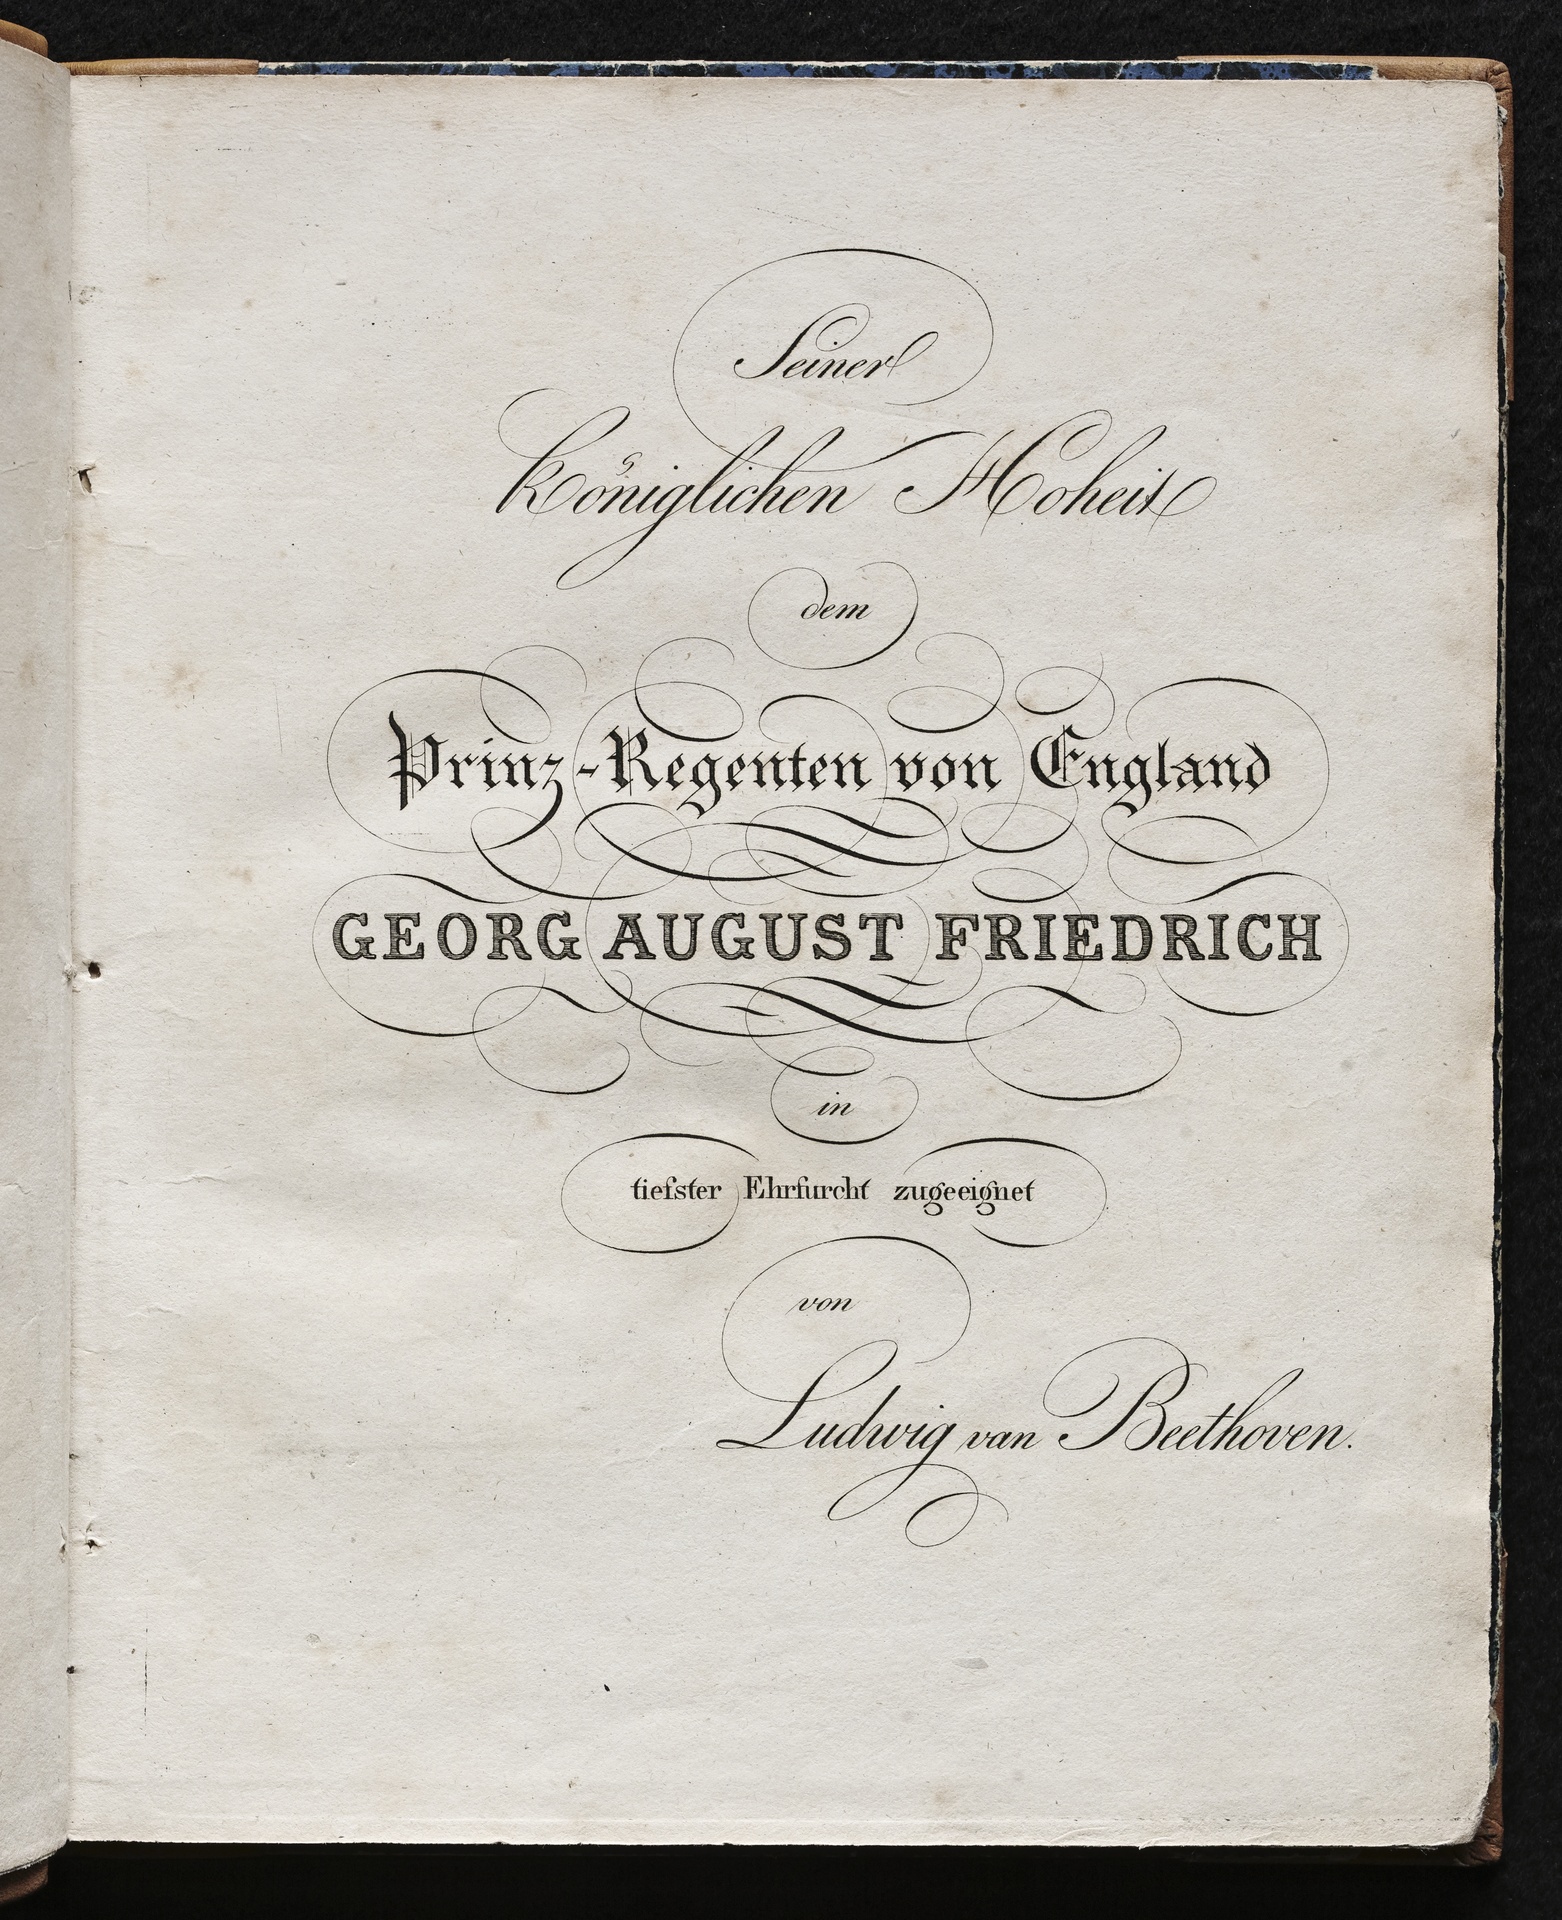 Seiner
Königlichen Hoheit
dem
Prinz-Regenten von England
GEORG AUGUST FRIEDRICH
in
tiefster Ehrfurcht zugeeignet
von
Ludwig van Beethoven.